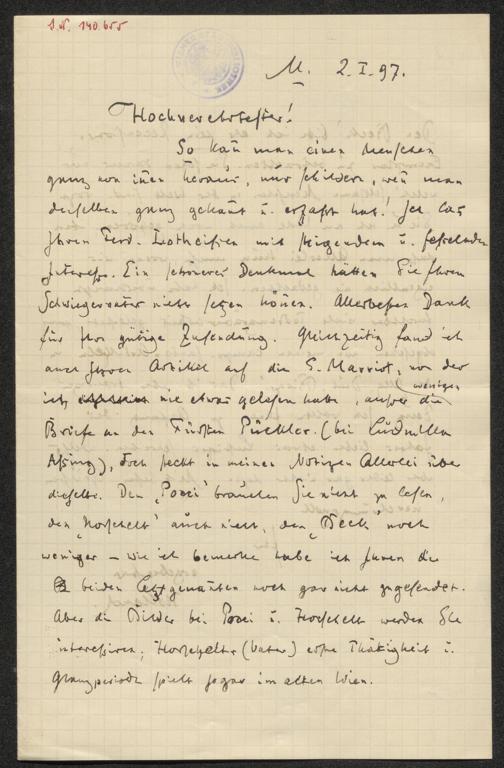 J.N. 140.655
M. 2.I.97.
Hochverehrtester!
So kan̄ man einen Menschen
ganz von innen heraus, nur schildern, wen̄ man
denselben ganz gekan̄t u. erfaßt hat! Ich las
Ihren Ferd. Lotheißen mit steigendem u. fesselnden
Interesse. Ein schöneres Denkmal hätten Sie Ihrem
Schwiegervater nicht setzen kön̄en. Allerbesten Dank
für Ihre gütige Zusendung. Gleichzeitig fand ich
auch Ihren Artikel auf die E. Marriot, von der
ich nie etwas gelesen habe, außer die wenigen
Briefe an den Fürsten Pückler. (bei Ludmilla
Assing), doch steckt in meinen Notizen Allerlei über
dieselbe. Den „Pocci" brauchen Sie nicht zu lesen,
den „Horschelt" auch nicht, den „Beck" noch
weniger – wie ich bemerke habe ich Ihnen die
beiden letztgenan̄ten noch gar nicht zugesendet.
Aber die Bilder bei Pocci u. Horschelt werden Sie
interessiren; Horschelts (Vater) erste Thätigkeit u.
Glanzperiode spielt sogar im alten Wien.